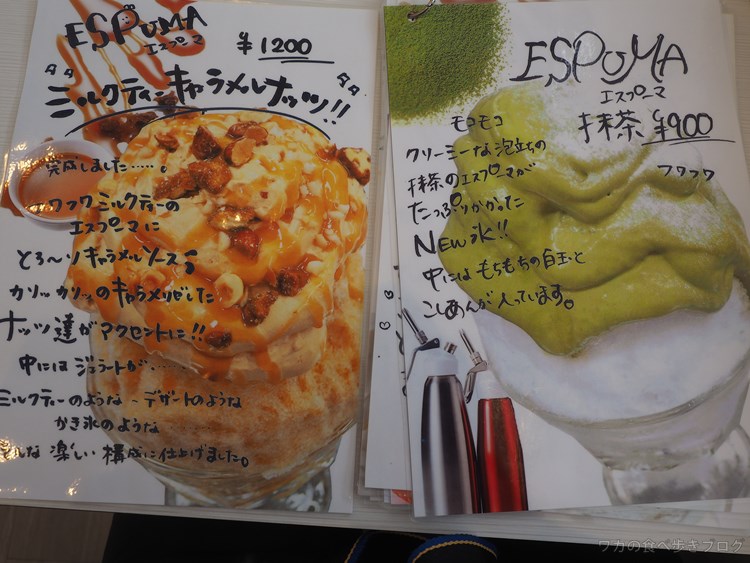 ESPUMA
エスプーマ
¥1200
タタ
ミルクティーキャラメルナッツ!!
タタ
完成しました……。
フワフワ ミルクティーの
エスプーマに
とろ〜りキャラメルソース
カリッカリッのキャラメリゼした
ナッツ達がアクセントに!!
中にはジェラートが……
ミルクティーのような、デザートのような
かき氷のような
な 楽しい 構成に仕上げました。
ESPUMA
エスプーマ
抹茶 ¥900
モコモコ
フワフワ
クリーミーな泡立ちの
抹茶のエスプーマが
たっぷりかかった
NEW氷!!
中にはもちもちの白玉と
こしあんが入っています。
ワカの食べ歩きブログ